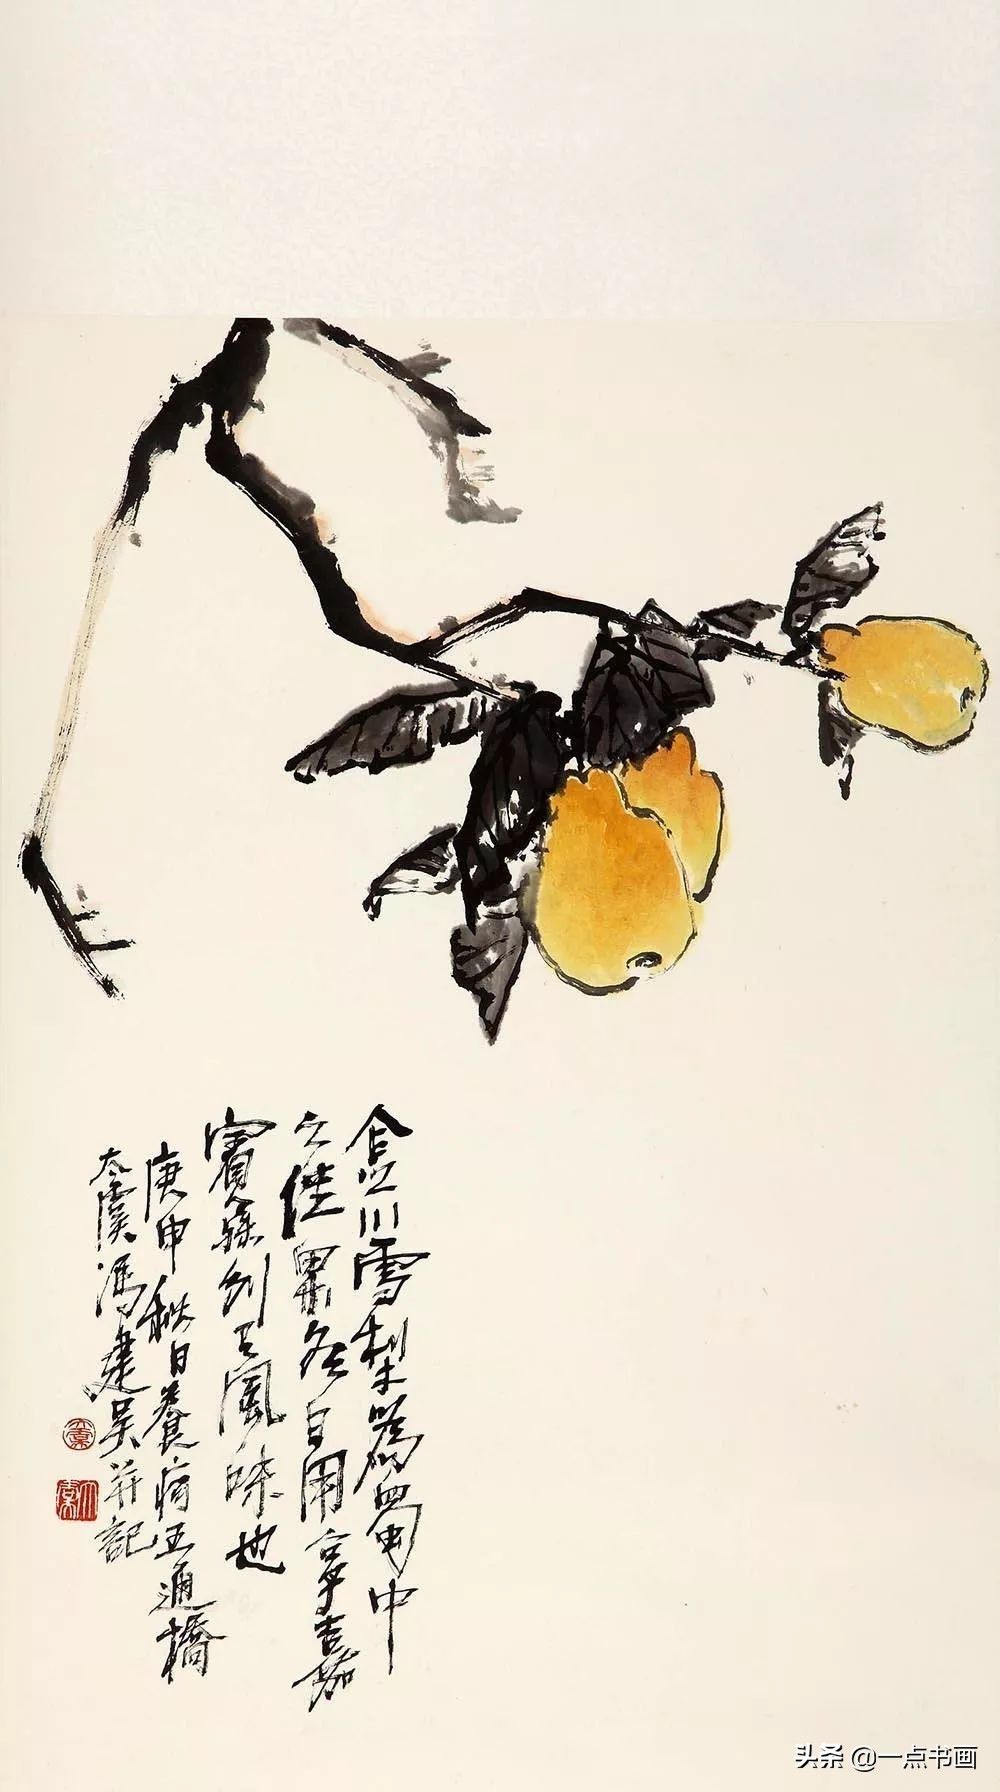 金川雪梨為蜀中
之佳果冬日用享嘉
賓殊别具風味也
庚申秋日養疴五通橋
太虞馮建吴并記
头条 @一点书画